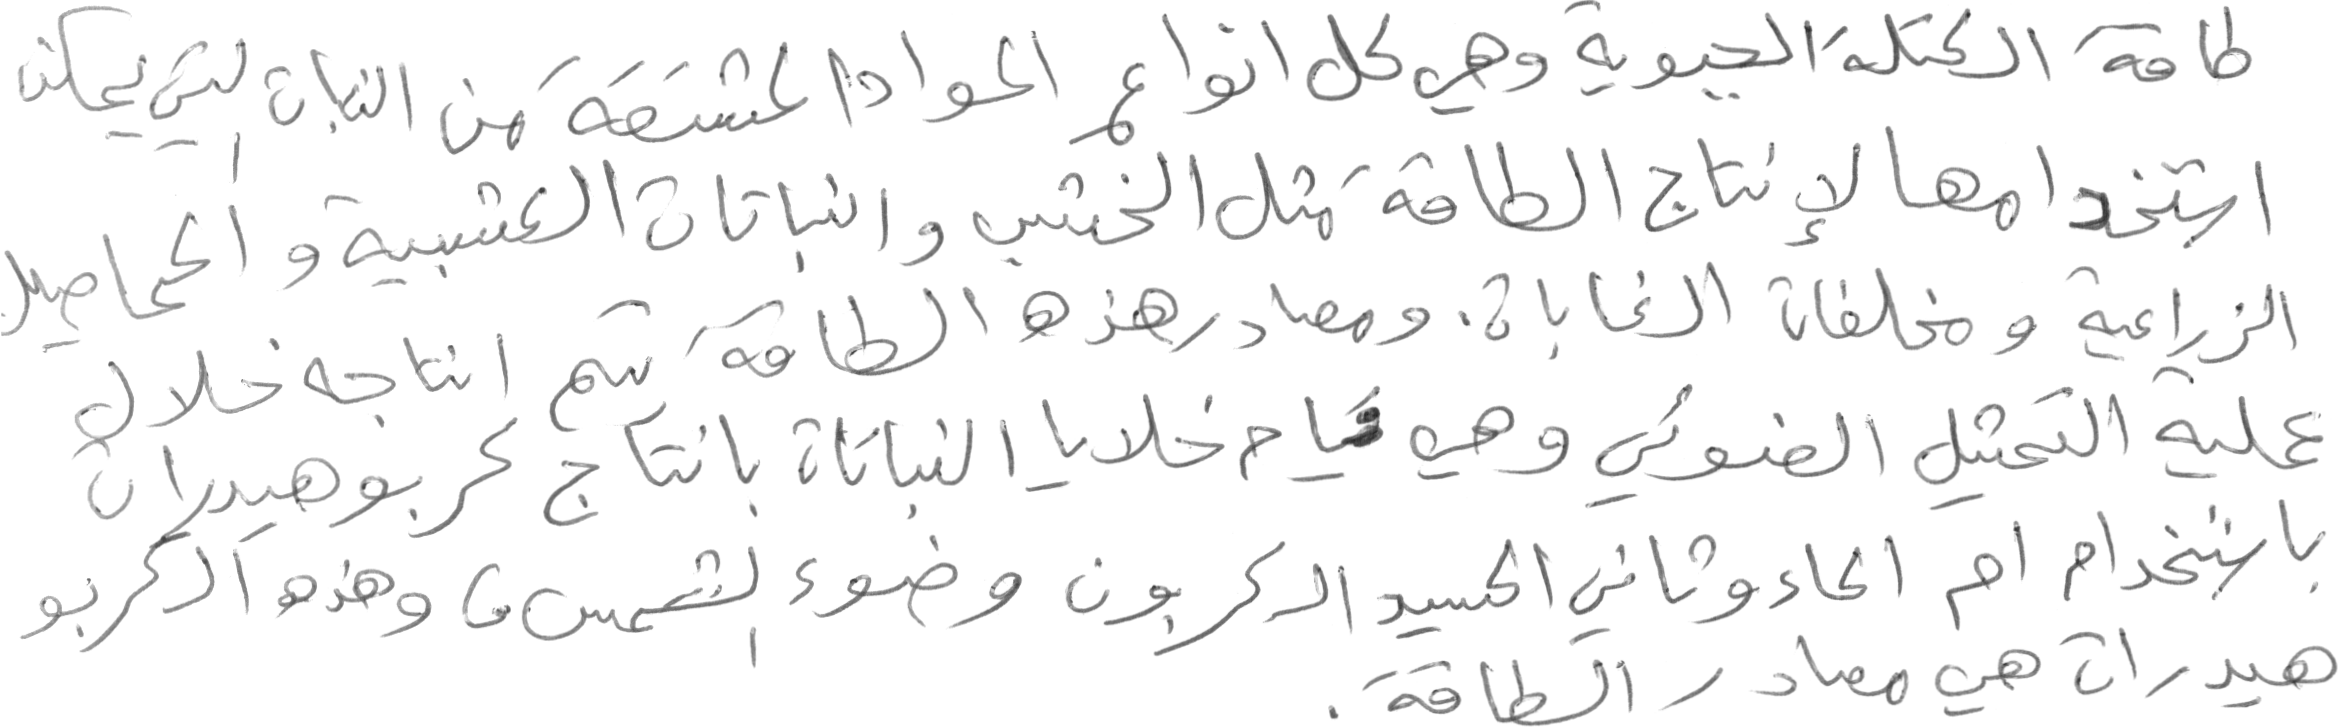 طاقة الكتلة الحيوية وهي كل انواع المواد المشتقة من النبات التي يمكن
استخدامها لإنتاج الطاقة مثل الخشب والنباتات العشبية والمحاصيل
الزراعية ومخلفات الغابات. ومصادر هذه الطاقة يتم انتاجه خلال
عملية التمثيل الضوئي وهي قيام خلايا النباتات بانتاج كربوهيدرات
باستخدام ام الماء وثاني اكسيد الكربون وضوء الشمس، وهذه الكربو
هيدرات هي مصادر الطاقة.